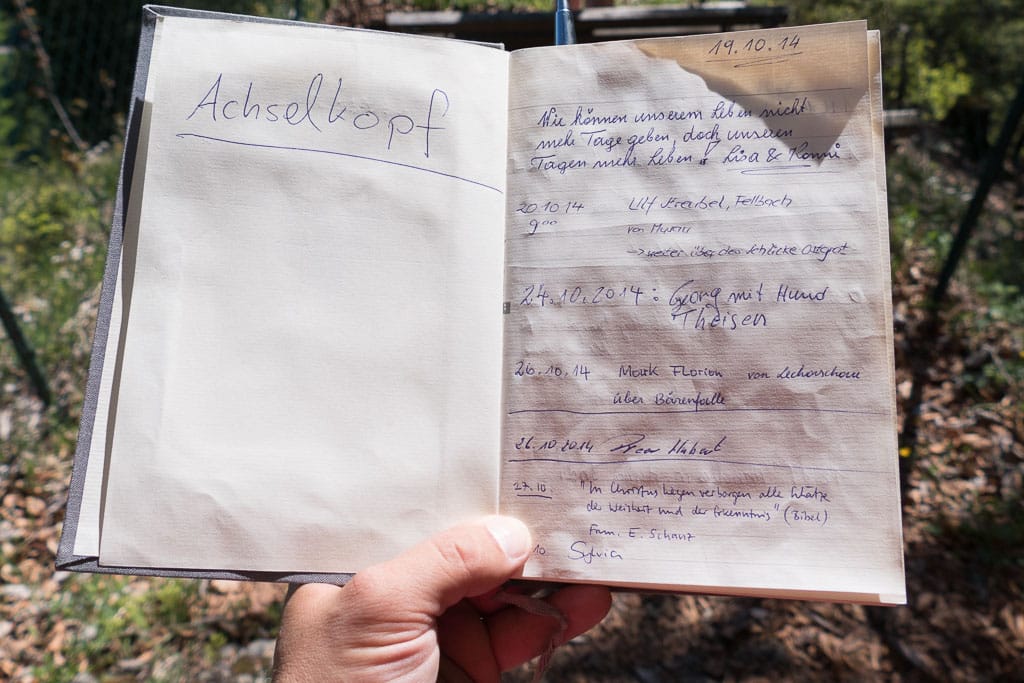 Achselkopf
19.10.14
Wir können unserem Leben nicht
mehr Tage geben, doch unseren
Tagen mehr Leben Lisa & Konni
20.10.14
9⁰⁰
Fellbach
von
→ weiter über den Schlicke Ostgrat
24.10.2014: Georg mit Hund
Theisen
26.10.14 Florian von
über Bärenfalle
26.10.2014 Hubert
27.10. "In Christus liegen verborgen alle Schätze
der Weisheit und der Erkenntnis" (Bibel)
Fam. E. Schanz
10 Sylvia